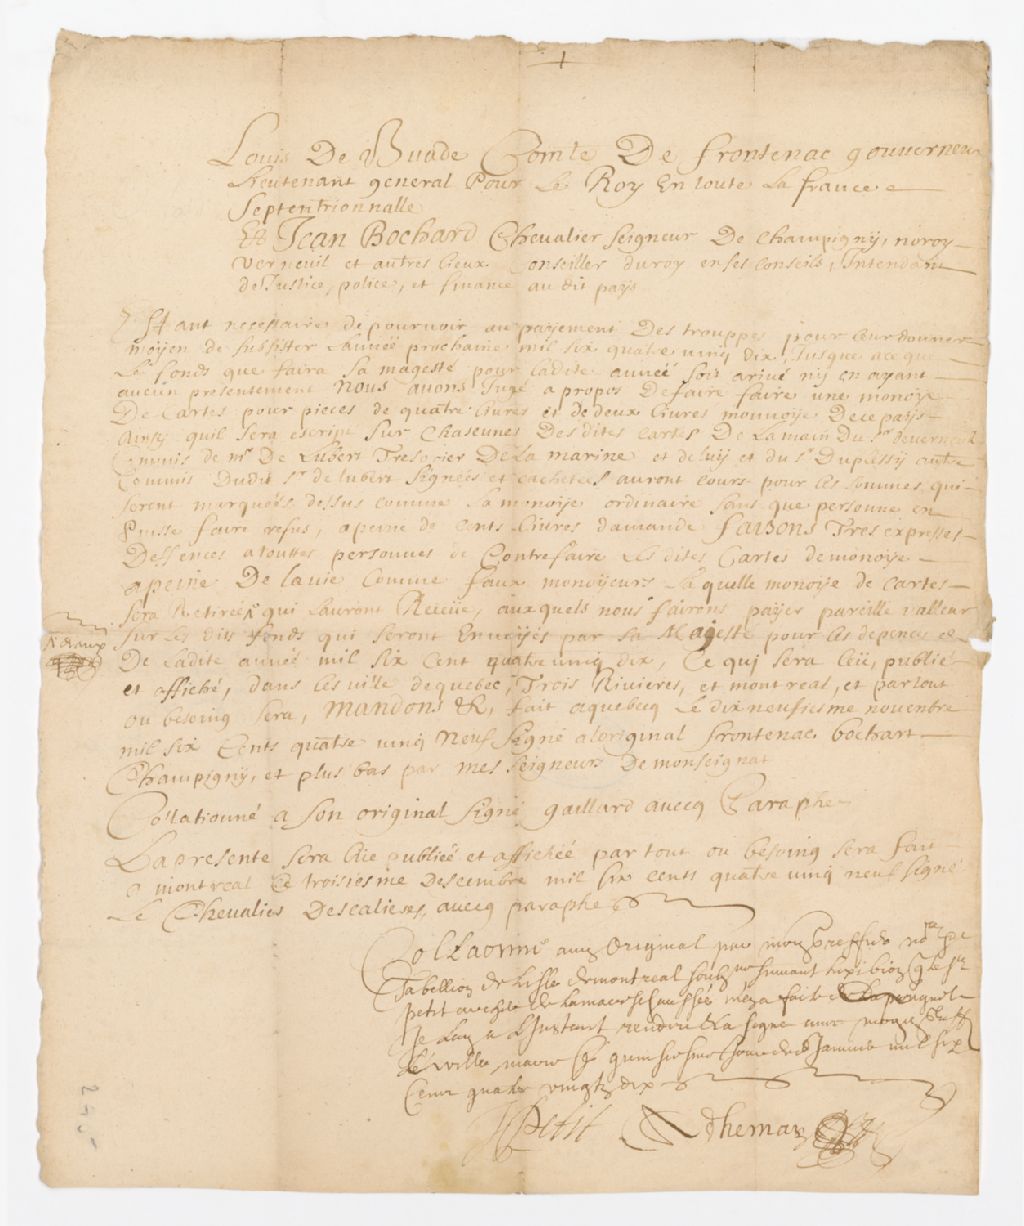 Louis De Buade Comte De frontenac gouverneur
Lieutenant general Pour Le Roy En toute La france
Septentrionnalle
Et Jean Bochard Chevalier seigneur De Champigny, noroy
Verneuil et autres lieux Conseiller du roy en ses conseils, Intendant
de Justice, police, et finance au dit pays
Estant necessaire de pourvoir au payement Des trouppes pour leur donner
moyen de subsister Lanneé prochaine mil six quatre ving dix, Jusque a ce que
Le fonds que faira sa magesté pour Ladite anneé soit arivé n'y en ayant
aucun presentement Nous avons Jugé a propos De faire faire une monoye
De Cartes pour pieces de quatre livres et de deux livres monnoye De ce pays
Ainsy quil sera escript sur Chascunes Des dites cartes De La main Du sr. de verneuil
Commis de mr. De Lubert Tresorier De La marine et de luy et du sr. Duplessy autre
Commis Dudit sr. de lubert signeés et cacheteés auront cours pour les sommes qui
seront marqueés dessus comme La monoye ordinaire sans que personne en
Puisse faire refus, a peine de cents livres damande faisons Tres expresses
Deffences a touttes personnes de Contrefaire Les dites Cartes de monoye
a peine De la vie Comme faux monoyeurs La quelle monoye de cartes
sera Retireé qui Lauront Receüe, aux quels nous fairons payer pareille valleur
sur Les dits fonds qui seront Envoyés par sa Majesté pour les depences
De Ladite anneé mil six Cent quatre ving dix, Ce qui sera leü, publié
et affiché, dans les ville de quebec, Trois Rivieres, et montreal, et partout
ou besoing sera, Mandons &, fait a quebecq Le dix neufiesme novenbre
mil six Cents quatre ving Neuf signé a loriginal frontenac bochart
Champigny, et plus bas par mes seigneurs De monseignat
Collationné a son original signé gaillard avecq Paraphe
La presente sera lüe publieé et afficheé par tout ou besoing sera fait
a montreal Ce troisiesme Desembre mil six cents quatre ving neuf signé
Le Chevalier Descalieres, avecq paraphe
Collaonné aux Original par moy no.re
Tabellion de Lisle de montreal
petit
Je Luy a L'Justant rendu & a signé avec moy
de ville marie Ce quinsiesme Jour de Janvier mil six
Cent quatre vingtz dix
Petit Adhemar